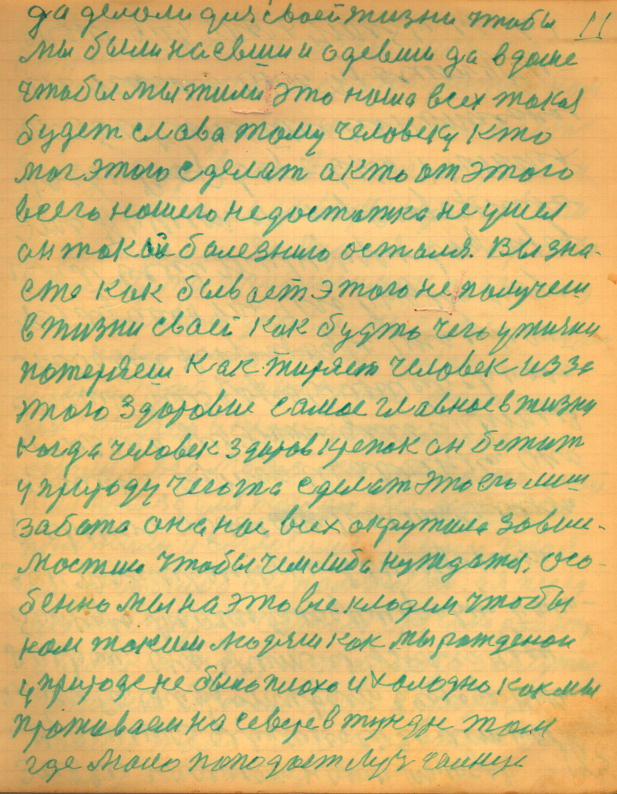 да делали для своей жизни чтобы 11
мы были наевши и одевши да в доме
чтобы мы жили это наша всех такая
будет слава тому человеку кто
мог этого сделат а кто от этого
всего нашего недостатка не ушел
он такой болезнию осталя. Вы зна-
ете как бывает этого не получеш
в жизни своей как будто чего у жизни
потеряеш как тиряет человек из за
этого здоровие самое главное в жизни
когда человек здоров крепок он бежит
у природу чегота сделат это его лиш
забота она нас всех окружила зовие-
мостию чтобы чем либо нуждатя. осо-
бенно мы на это все кладем чтобы
нам таким людям как мы рожденои
у природе не было плохо и холодно как мы
проживаем на севере в тундре там
где мало попадает луч солнце